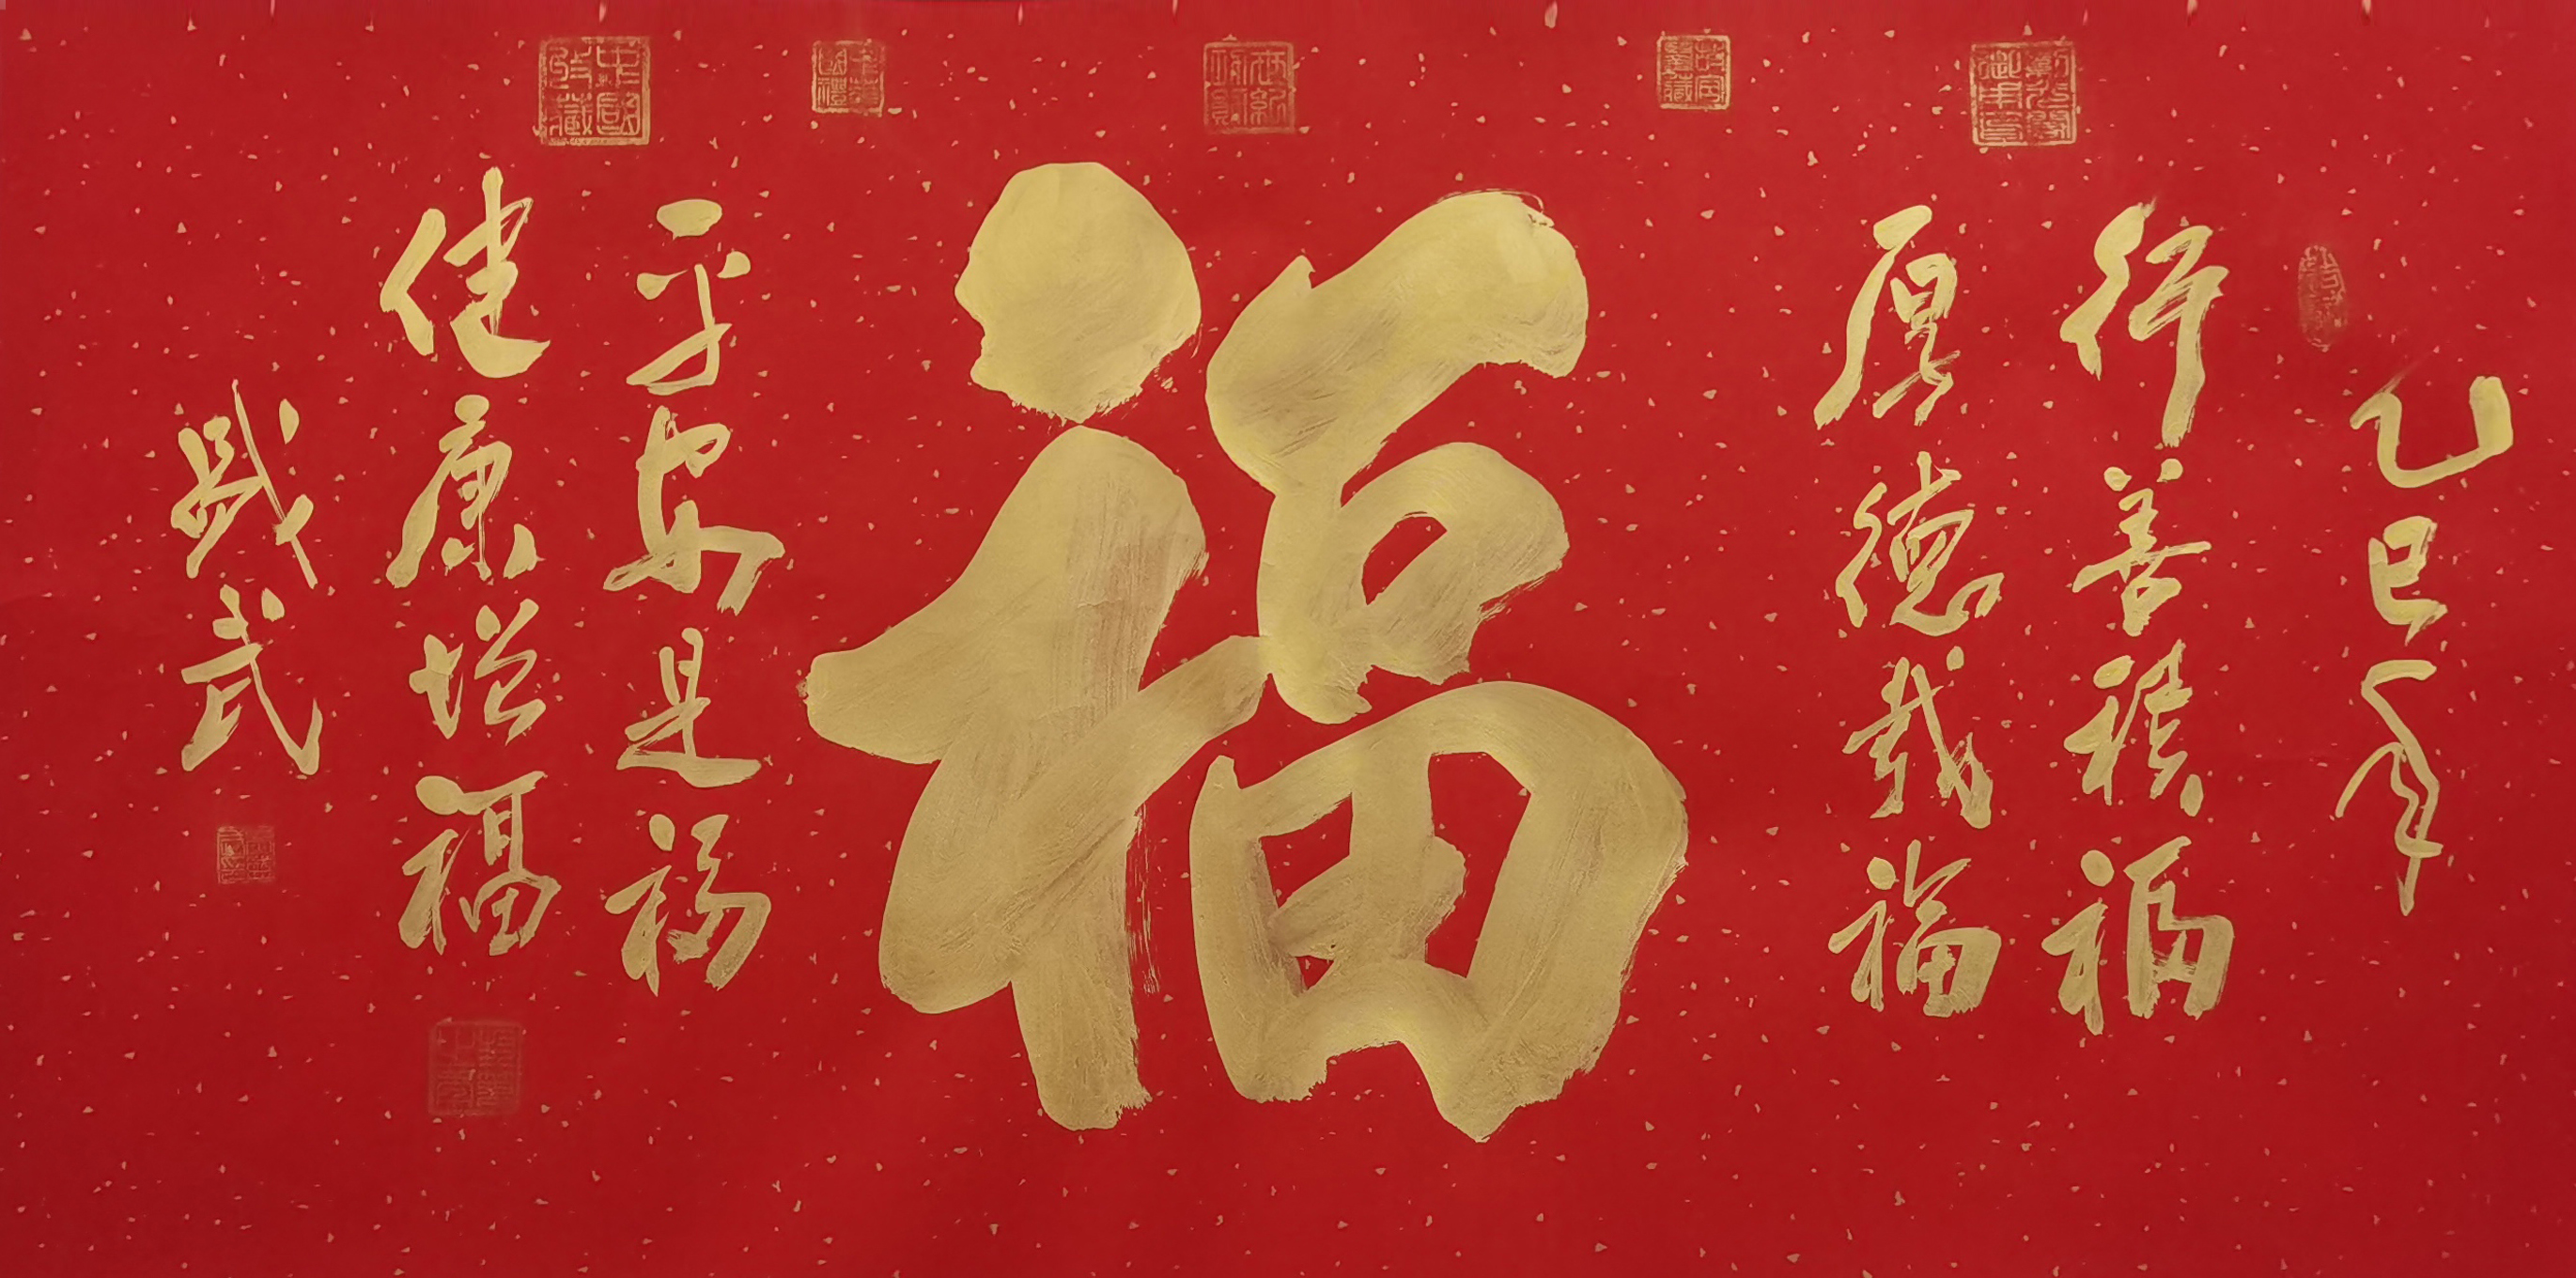 乙巳年
行善積福
厚德載福
福
平安是福
健康增福
武